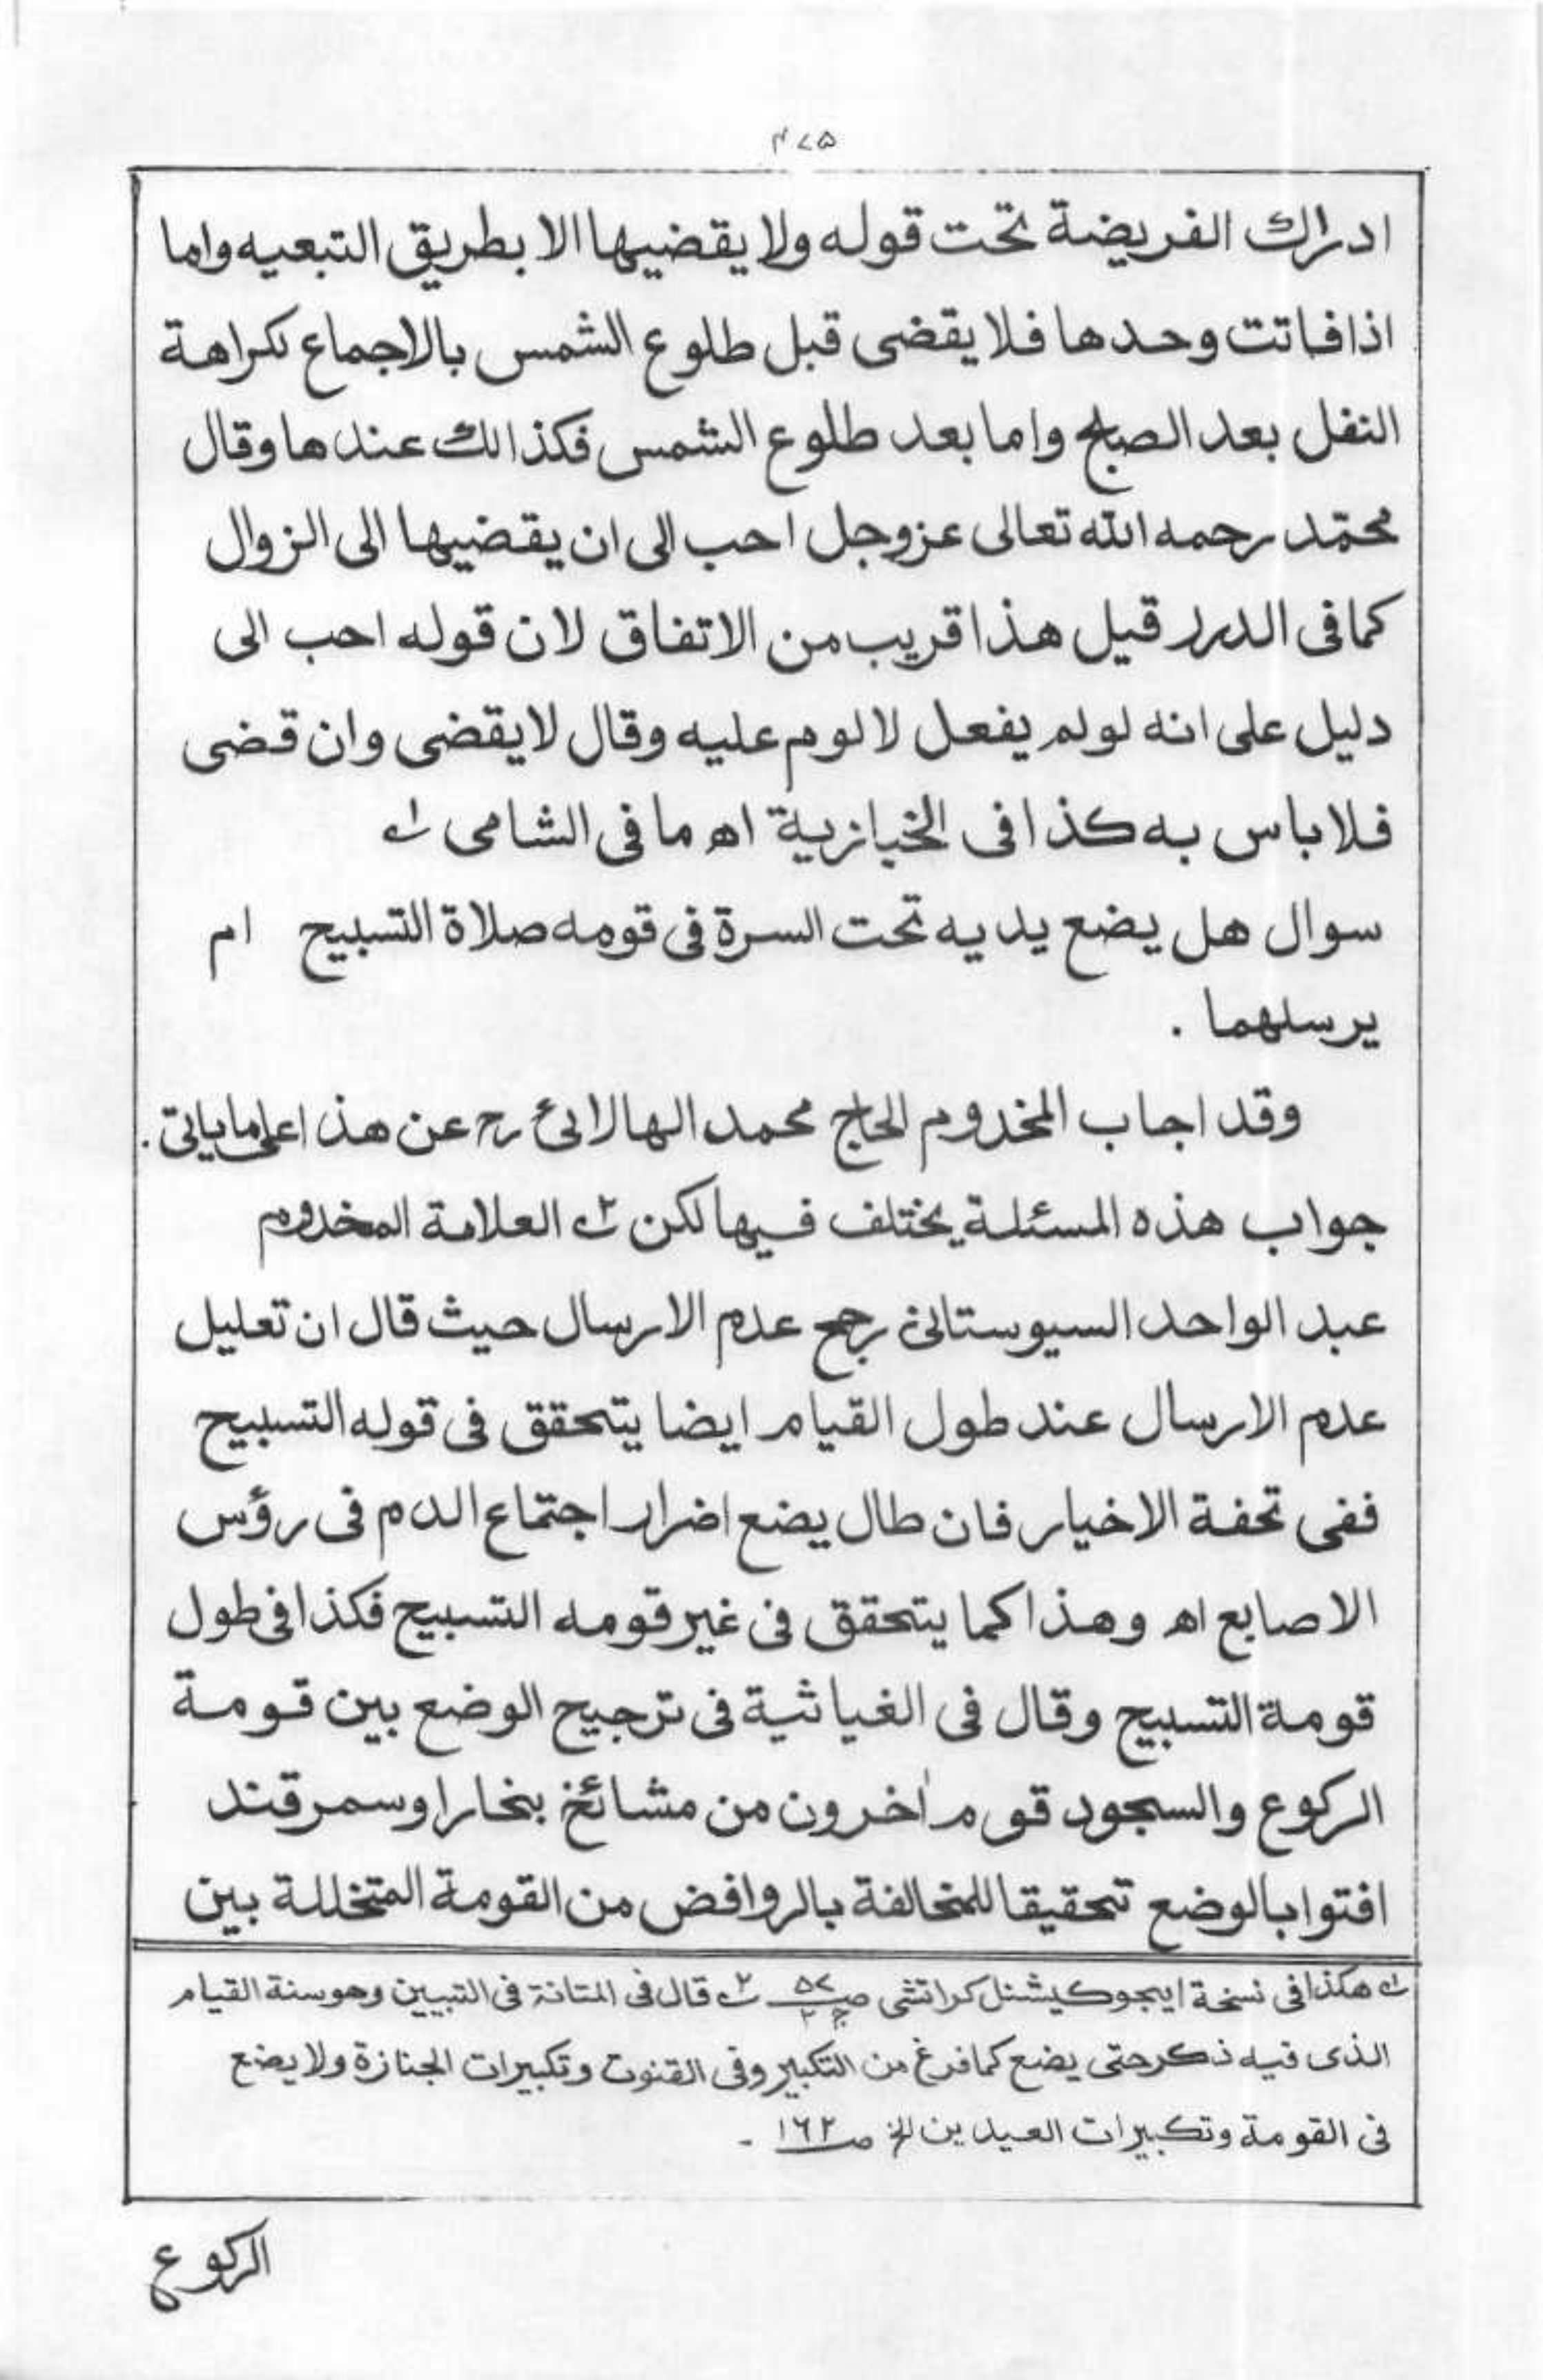 ۴۷۵
ادراك الفريضة تحت قوله ولا يقضيها الا بطريق التبعيه واما
اذا فاتت وحدها فلا يقضى قبل طلوع الشمس بالاجماع لكراهة
النفل بعد الصبح واما بعد طلوع الشمس فكذالك عندها وقال
محمّد رحمه الله تعالى عزوجل احب الى ان يقضيها الى الزوال
كما فى الدرر قيل هذا قريب من الاتفاق لان قوله احب الى
دليل على انه لو لم يفعل لا لوم عليه وقال لا يقضى وان قضى
فلا باس به كذا فى الخبازية اه ما فى الشامى ١ه
سوال هل يضع يديه تحت السرة فى قومه صلاة التسبيح ام
يرسلهما .
وقد اجاب المخدوم الحاج محمد الهالائى رح عن هذا على ما ياتى .
جواب هذه المسئلة يختلف فيها لكن ٢ه العلامة المخدوم
عبد الواحد السيوستانى رجح عدم الارسال حيث قال ان تعليل
عدم الارسال عند طول القيام ايضا يتحقق فى قوله التسبيح
ففى تحفة الاخيار فان طال يضع اضرار اجتماع الدم فى رؤس
الاصابع اه وهذا كما يتحقق فى غير قومه التسبيح فكذا فى طول
قومة التسبيح وقال فى الغياثية فى ترجيح الوضع بين قومة
الركوع والسجود قوم اٰخرون من مشائخ بخارا وسمرقند
افتوا بالوضع تحقيقا للمخالفة بالروافض من القومة المتخللة بين
١ه هكذا فى نسخة ايجوكيشنل كراتشى صـ ۵۷ ج ٢ ٢ه قال فى المتانة فى التبيين وهو سنة القيام
الذى فيه ذكر حتى يضع كما فرغ من التكبير وفى القنوت وتكبيرات الجنازة ولا يضع
فى القومة وتكبيرات العيدين الخ صـ ١٦٢ -
الركوع